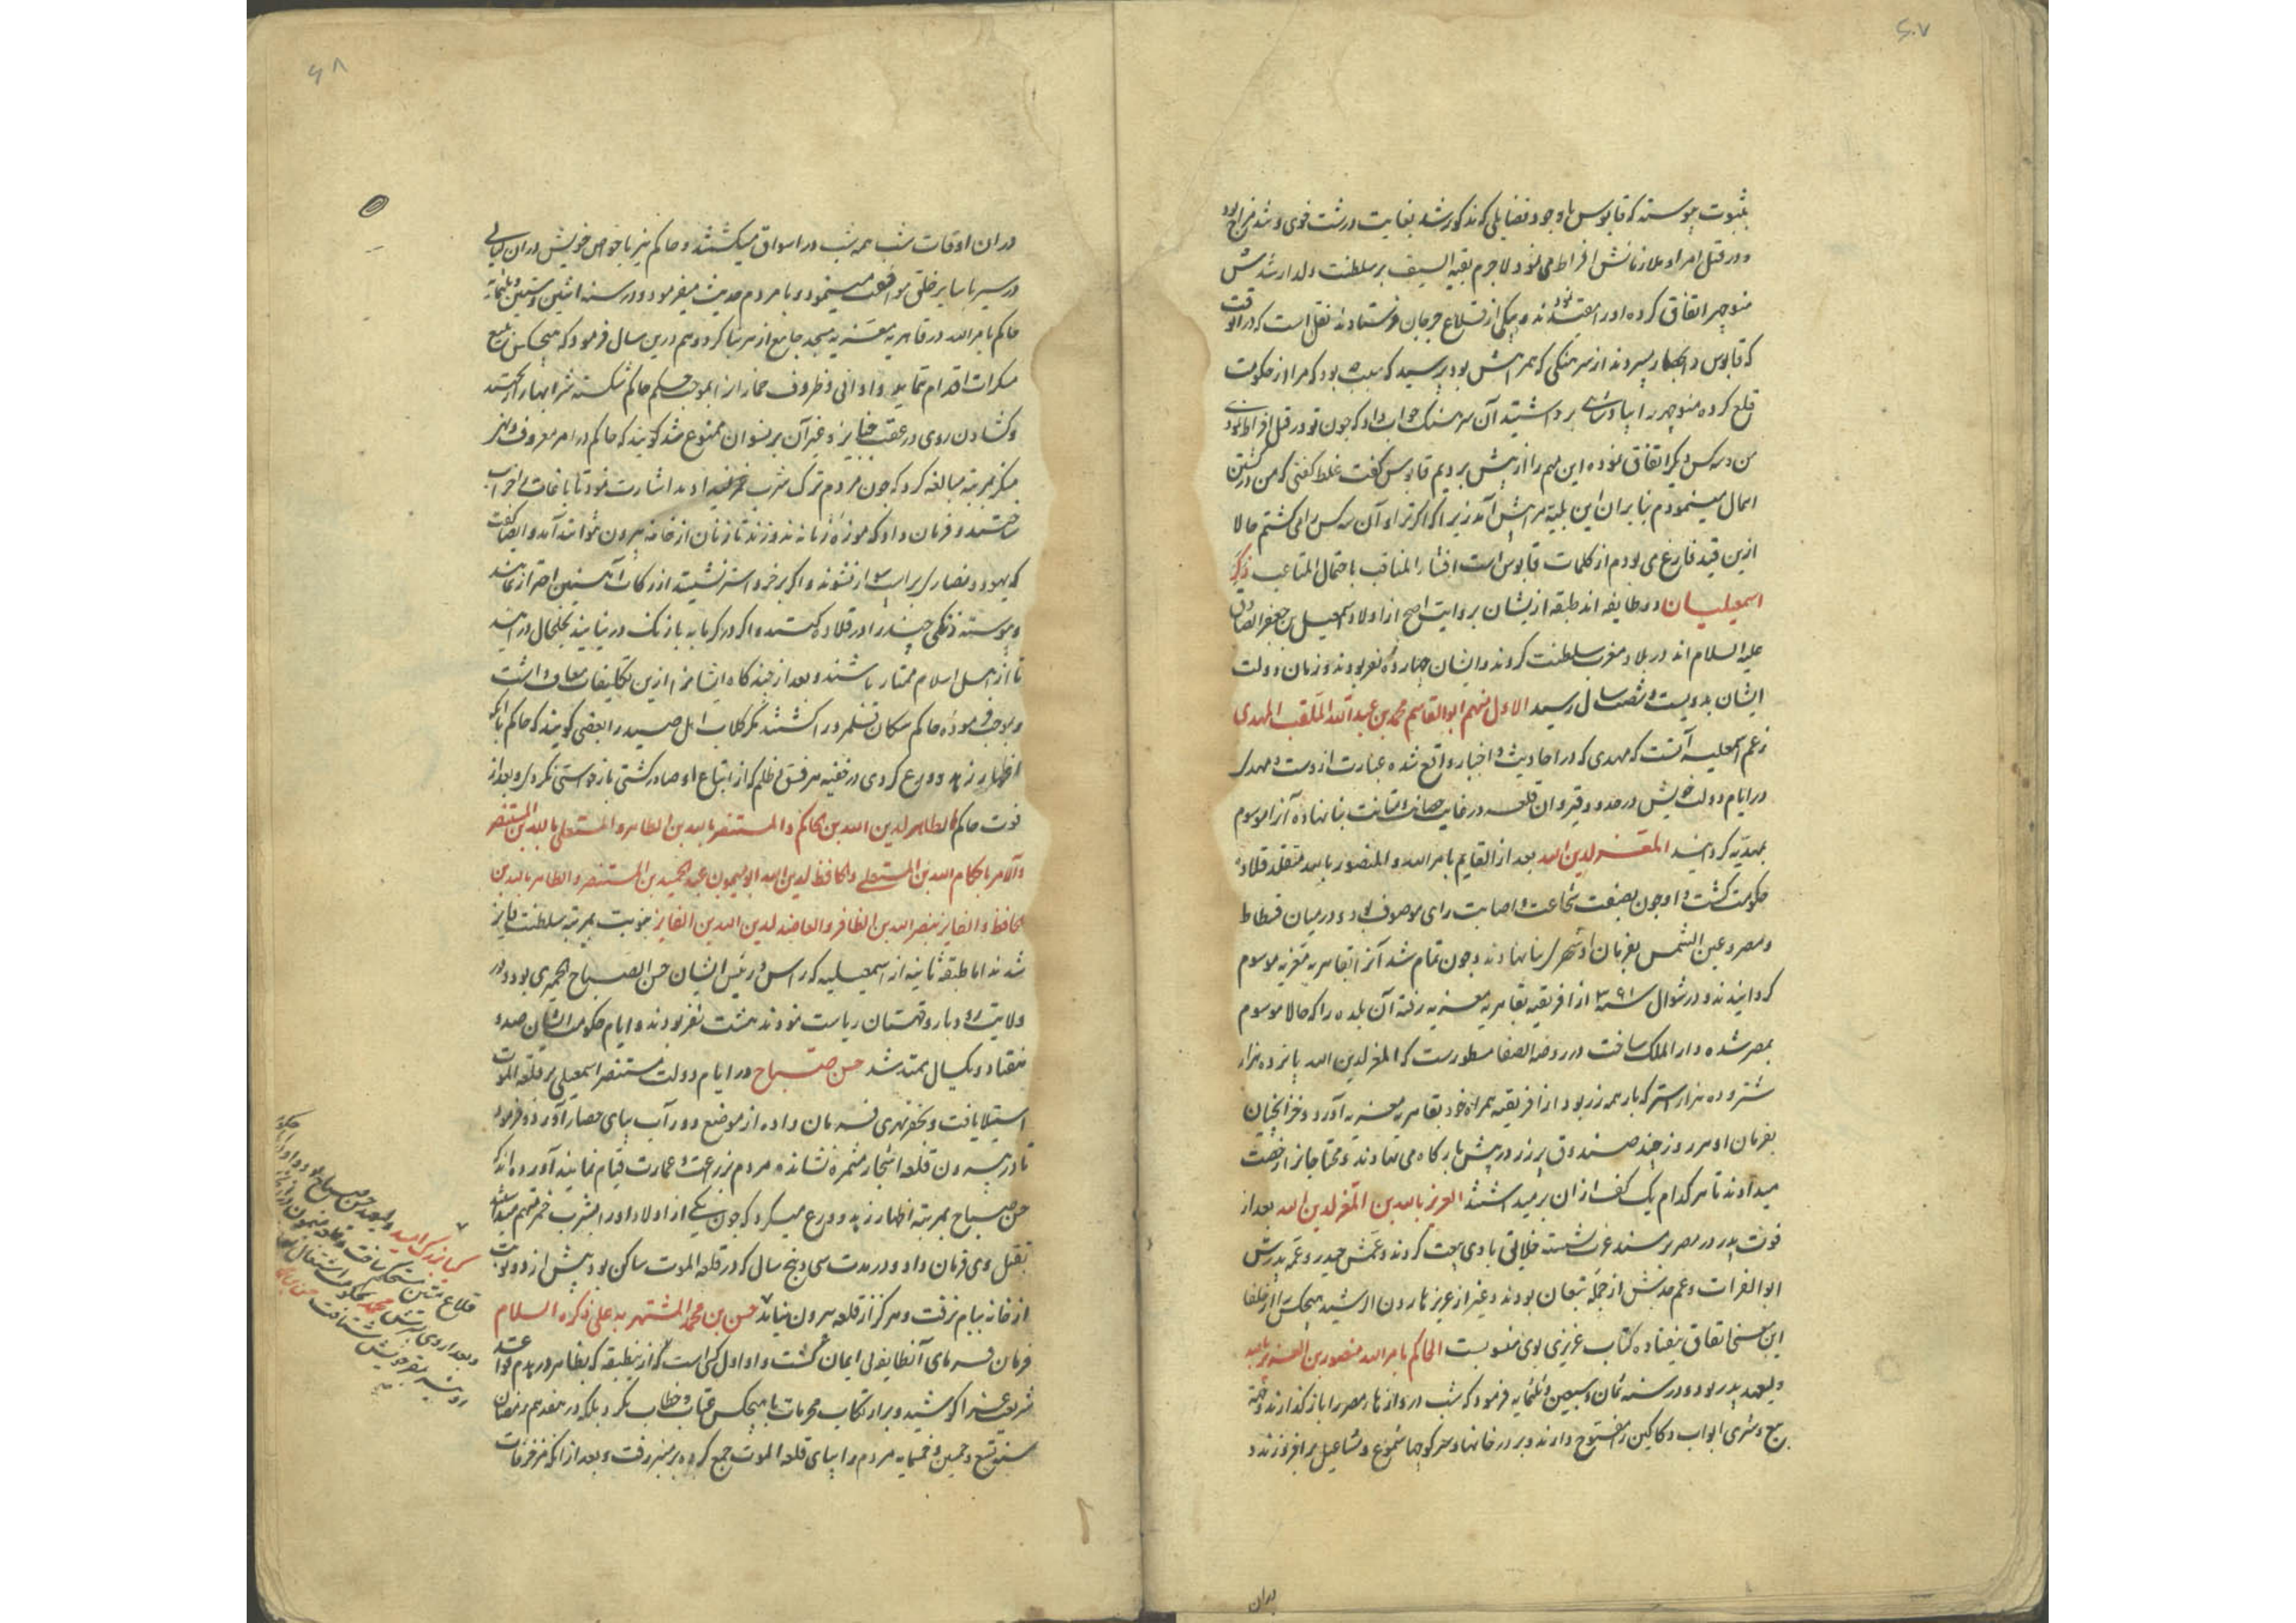 ۶۰۷
بثبوت پیوسته که قابوس با وجود فضایلی که مذکور شد بغایت درشت خوی و تند مزاج بود
و در قتل امرا و ملازمانش افراط می نمود لاجرم بقیة السیف بر سلطنت ولد ارشدش
منوچهر اتفاق کرده او را مقید نمودند و بیکی از قلاع جرجان فرستادند نقل است که در آن وقت
که قابوس را بحصار میبردند از سرهنگی که همراهش بود پرسید که سبب چه بود که مرا از حکومت
خلع کرده منوچهر را بپادشاهی برداشتید آن سرهنگ جواب داد که چون تو در قتل افراط نمودی
من و سه کس دیگر اتفاق نموده این مهم را از پیش بردیم قابوس گفت غلط گفتی که من در کشتن
اهمال مینمودم بنابران این بلیه مرا پیش آمد زیرا که اگر ترا و آن سه کس را می کشتم حالا
ازین قید فارغ می بودم از کلمات قابوس است اقتناء المناقب باحتمال المتاعب ذکر
اسمعیلیان دو طایفه اند طبقه از ایشان بروایت اصح از اولاد اسمعیل بن جعفر الصادق
علیه السلام اند در بلاد مغرب سلطنت کردند و ایشان چهارده نفر بودند و زمان دولت
ایشان بدویست و شصت سال رسید الاول منهم ابو القاسم محمد بن عبد الله الملقب بالمهدی
زعم اسمعیلیه آنست که مهدی که در احادیث و اخبار واقع شده عبارت از وست و مهدی
در ایام دولت خویش در حدود قیروان قلعه در غایت حصانت و متانت بنا نهاده آنرا موسوم
بمهدیه گردانید المعز لدین الله بعد از القایم بامر الله و المنصور بالله متقلد قلاده
حکومت گشت و او چون بصفت شجاعت و اصابت رای موصوف بود در میان فسطاط
و مصر و عین الشمس بفرمان او شهری بنا نهادند و چون تمام شد آنرا بقاهریه معزیه موسوم
گردانیدند و در شوال سنه ۳۶۱ از افریقیه بقاهریه معزیه رفته آن بلده را که حالا موسوم
بمصر شده دار الملک ساخت در روضة الصفا مسطورست که المعز لدین الله پانزده هزار
شتر و ده هزار استر که بار همه زر بود از افریقیه همراه خود بقاهریه معزیه آورد و خزانچیان
بفرمان او هر روز چند صندوق پر زر در پیش بارگاه می نهادند و محتاجانرا رخصت
میدادند تا هر کدام یک کف از ان بر میداشتند العزیز بالله بن المعز لدین الله بعد از
فوت پدر در مصر بر مسند عزت نشسته خلایق با وی بیعت کردند و عمش حیدر و عم پدرش
ابو الفرات و عم جدش از جمله متبعان بودند و غیر از عزیز هارون الرشید هیچکس را از خلفا
این معنی اتفاق نیفتاده کتاب عزیزی بوی منسوبست الحاکم بامر الله منصور بن العزیز بالله
ولیعهد پدر بود و در سنه ثمان و سبعین و ثلثمایه فرمود که شب دروازه‌ها مصر را باز گذارند و جهة
بیع و شری ابواب دکاکین را مفتوح دارند و بر در خانها و سر کوچها شموع و مشاعیل بر افروزند و
دران
۶۸
در ان اوقات شب همه شب در اسواق میکشتند و حاکم نیز با خواص خویش در ان لیالی
در سیر با سایر خلق موافقت مینمود و با مردم حدیث میفرمود و در سنه اثنین و ستین و ثلثمایه
حاکم بامر الله در قاهریه معزیه مسجد جامع ازهر بنا کرد و هم درین سال فرمود که هیچکس ببیع
مسکرات اقدام ننماید و اوانی و ظروف خمارانرا بموجب حکم حاکم شکسته شرابها را ریختند
و گشادن روی در عقب جنایز و غیر آن بر نسوان ممنوع شد گویند که حاکم در امر معروف و نهی
منکر بمرتبه مبالغه کرد که چون مردم ترک شرب خمر نمیدادند اشارت نمود تا باغات را خراب
ساختند و فرمان داد که موزه زنانه ندوزند تا زنان از خانه بیرون نتوانند آمد و ایضا گفت
که یهود و نصاری بر اسب سوار نشوند و اگر بر خر و استر نشینند از رکاب آهنین احتراز نمایند
و پیوسته زنگی چند را در قلاده کشند و اگر در گرمابه بازنگ در نیایند بخلخال در آیند
تا از اهل اسلام ممتاز باشند و بعد از چند گاه ایشانرا ازین تکلیفات معاف داشت
و بموجب فرموده حاکم سکان قلمرو را کشتند مگر کلاب اهل صید را بعضی گویند که حاکم با آنکه
اظهار زهد و ورع کردی در خفیه هر فسق و ظلم که از اتباع او صادر گشتی باز خواستی نکردی و بعد از
فوت حاکم الظاهر لدین الله بن حاکم و المستنصر بالله بن الظاهر و المستعلی بالله بن المستنصر
و الآمر باحکام الله بن المستعلی و الحافظ لدین الله ابو میمون عبد الحمید بن المستنصر و الظافر بالله بن
الحافظ و الفایز بنصر الله بن الظافر و العاضد لدین الله بن الفایز بنوبت بمرتبه سلطنت فایز
شدند اما طبقه ثانیه از اسمعیلیه که راس و رئیس ایشان حسن الصباح الحمیری بود و در
ولایت رودبار و قهستان ریاست نمودند هشت نفر بودند و ایام حکومت ایشان صد و
هفتاد و یکسال ممتد شد حسن صباح در ایام دولت مستنصر اسمعیلی بر قلعه الموت
استیلا یافت و بحفر نهری فرمان داده از موضع دور آب بپای حصار آورد و فرمود
تا در بیرون قلعه اشجار مثمره نشانده مردم بزراعت و عمارت قیام نمایند آورده اند که
حسن صباح بمرتبه اظهار زهد و ورع میکرد که چون یکی از اولاد او را بشرب خمر متهم ساختند
بقتل وی فرمان داد و در مدت سی و پنج سال که در قلعه الموت ساکن بود بیش از دو نوبت
از خانه ببام نرفت و هرگز از قلعه بیرون نیامد حسن بن محمد المشتهر به علی ذکره السلام
فرمان فرمای آنطایفه بی ایمان گشت و او اول کسی است که ازینطبقه که بظاهر در هدم قواعد
شریعت غرا کوشید و بر ارتکاب محرمات با هیچکس عتاب و خطاب نکرد بلکه در هفدهم رمضان
سنه تسع و خمسین و خمسمایه مردم را بپای قلعه الموت جمع کرده بر منبر رفت و بعد از آنکه مزخرفات
کیا بزرک امید ولیعهد حسن صباح بود و او در ایام حکومت
قلاع متین مستحکم ساخت
و بعد از وی پسرش محمد بحکومت اشتغال
بمقر خویش شتافت